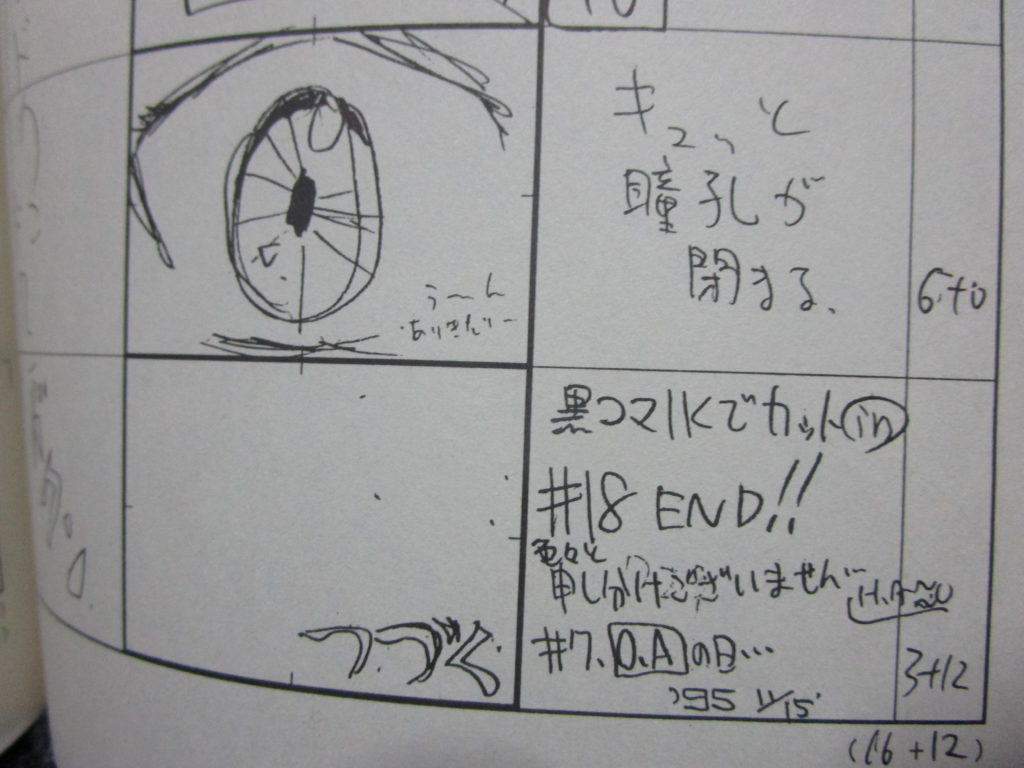 キュッと
瞳孔が
閉まる、
6+0
うーん
ありきたりー
黒コマ1Kでカット in
#18 END!!
色々と
申しわけございません…
つづく
#7、O.Aの日…
'95 11/15
3+12
(16+12)